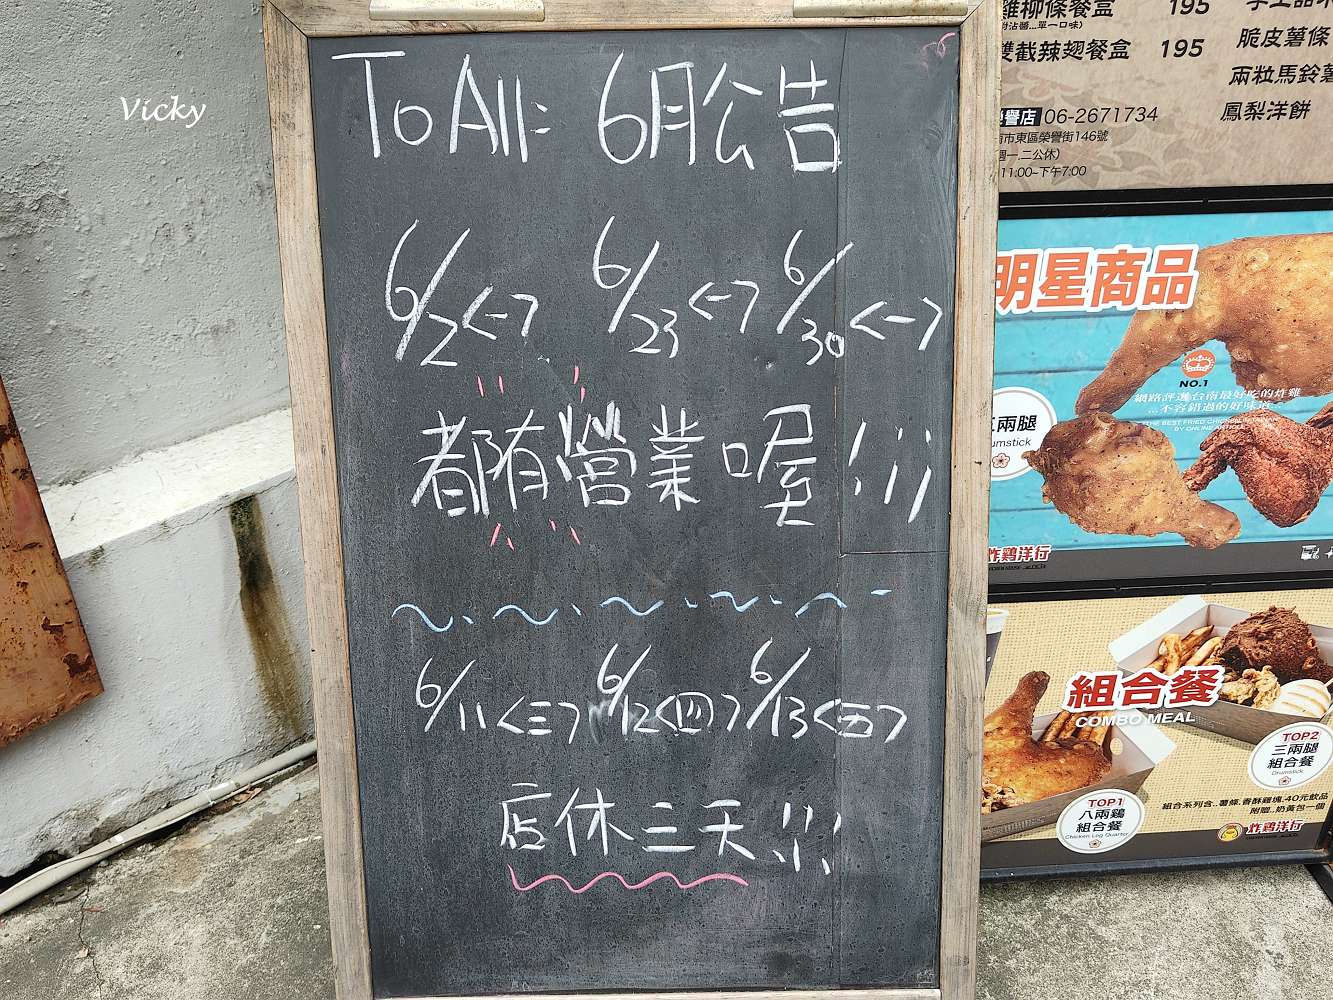 Vicky
To All: 6月公告
6/2<一> 6/23<一> 6/30<一>
都有營業喔!!!
6/11<三> 6/12<四> 6/13<五>
店休二天!!!
雞柳條餐盒 195
附沾醬...單一口味)
雙截辣翅餐盒 195
脆皮薯條
兩粒馬鈴薯
鳳梨洋餅
榮譽店 06-2671734
南市東區榮譽街146號
週一.二公休)
11:00~下午7:00
明星商品
NO.1
網路評選台南最好吃的炸雞
...不容錯過的好味道...
THE BEST FRIED CHICKEN
BY ONLINE
三兩腿
umstick
炸鷄洋行
組合餐
COMBO MEAL
TOP2
三兩腿
組合餐
Drumstick
TOP1
八兩鷄
組合餐
Chicken Leg Quarter
組合系列含..薯條.香酥雞塊.40元飲品
附贈..奶黃包一個
炸鷄洋行